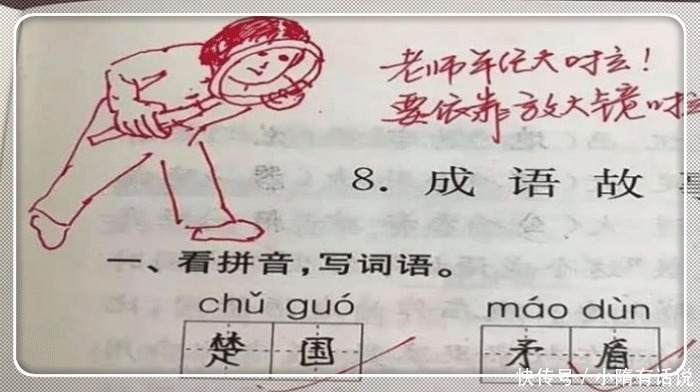 老师年纪大啦！
要依靠放大镜啦
8. 成语故事
一、看拼音，写词语。
chǔ guó máo dùn
楚国 矛盾
快传号／小隋有话说